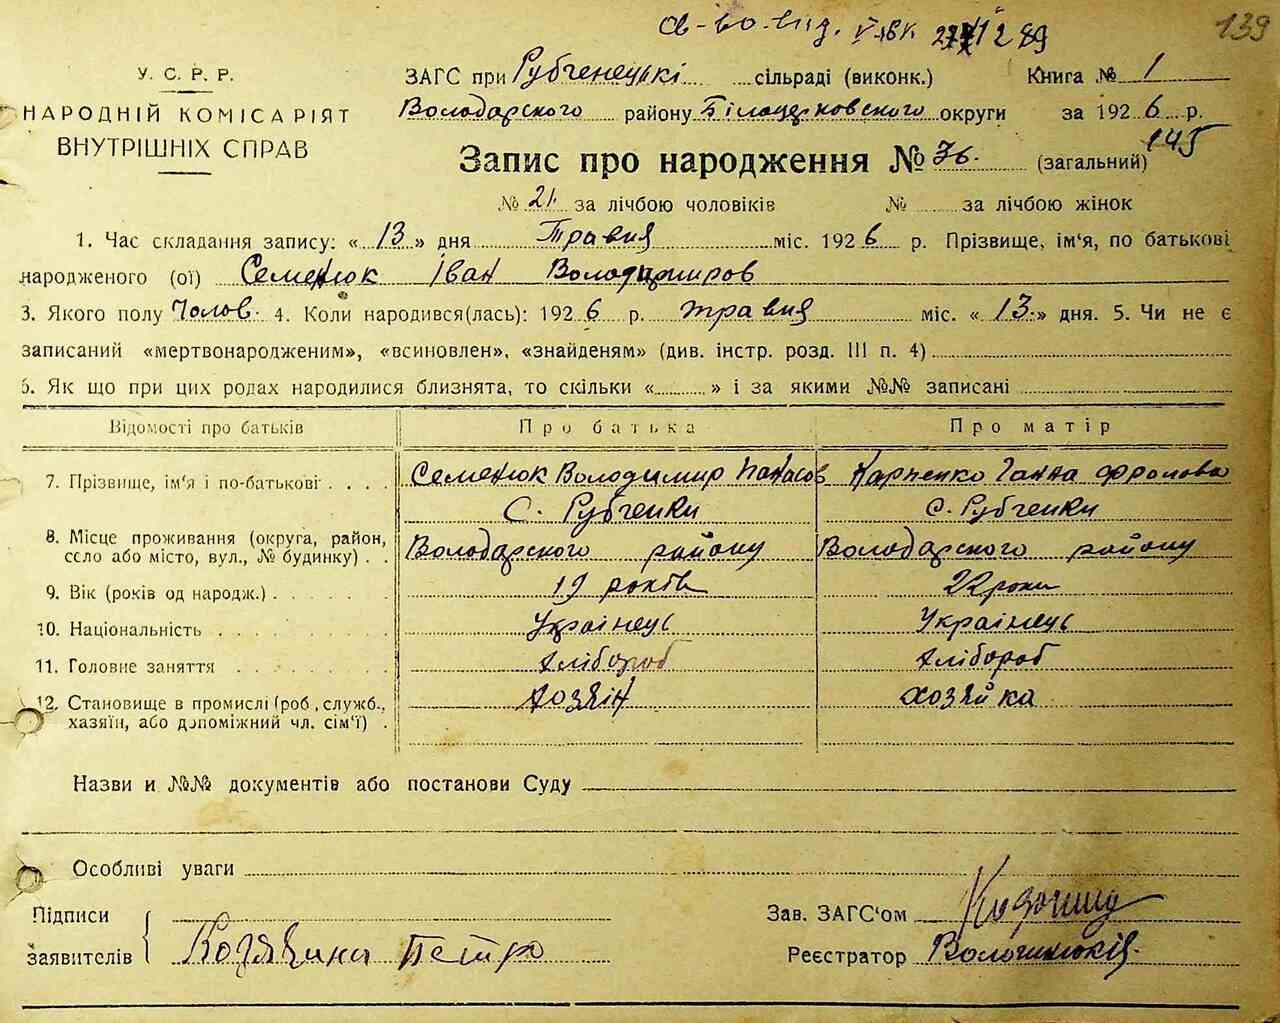 139
У. С. Р. Р.
НАРОДНІЙ КОМІСАРІЯТ
ВНУТРІШНІХ СПРАВ
ЗАГС при Рубченецькі сільраді (виконк.) Книга № 1
Володарского району Білоцерковского округи за 1926 р.
145
Запис про народження № 36. (загальний)
№ 21 за лічбою чоловіків № за лічбою жінок
1. Час складання запису: « 13 » дня Травня міс. 1926 р. Прізвище, ім'я, по батькові
народженого (ої) Семенюк Іван Володимиров
3. Якого полу Чолов. 4. Коли народився(лась): 1926 р. травня міс. « 13. » дня. 5. Чи не є
записаний «мертвонародженим», «всиновлен», «знайденям» (див. інстр. розд. III п. 4)
6. Як що при цих родах народилися близнята, то скільки « » і за якими №№ записані
Відомості про батьків Про батька Про матір
7. Прізвище, ім'я і по-батькові . . . . Семенюк Володимир Панасов Карпенко Ганна Фролова
с. Рубченки с. Рубченки
8. Місце проживання (округа, район,
село або місто, вул., № будинку) . . Володарского району Володарского району
9. Вік (років од народж.) . . . . . 19 років 22 роки
10. Національність . . . . . . . . Українець Українець
11. Головне заняття . . . . . . . Хлібороб Хлібороб
12. Становище в промислі (роб., служб.,
хазяїн, або допоміжний чл. сім'ї) . Хозяїн хозяйка
Назви и №№ документів або постанови Суду
Особливі уваги
Підписи
заявителів Петро
Зав. ЗАГС'ом
Реєстратор